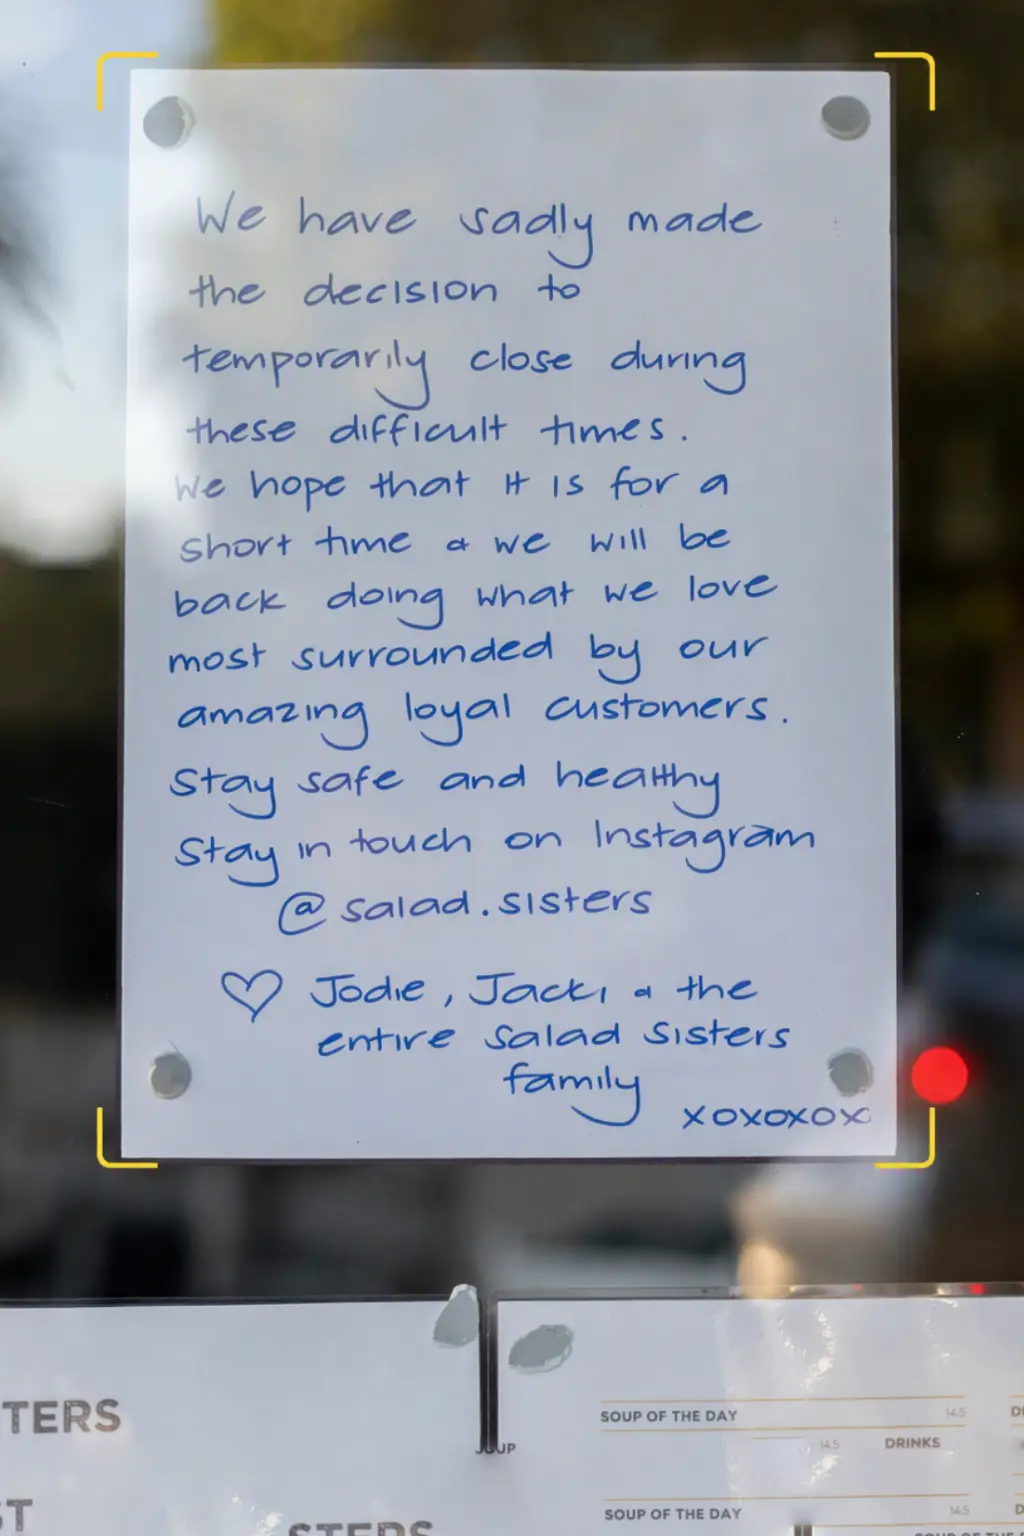 We have sadly made
the decision to
temporarily close during
these difficult times.
We hope that it is for a
short time & we will be
back doing what we love
most surrounded by our
amazing loyal customers.
Stay safe and healthy
Stay in touch on Instagram
@salad.sisters
♡ Jodie, Jacki & the
entire Salad Sisters
family
xoxoxox
TERS
SOUP OF THE DAY 14.5
14.5 DRINKS
SOUP OF THE DAY 14.5
ST
STERS